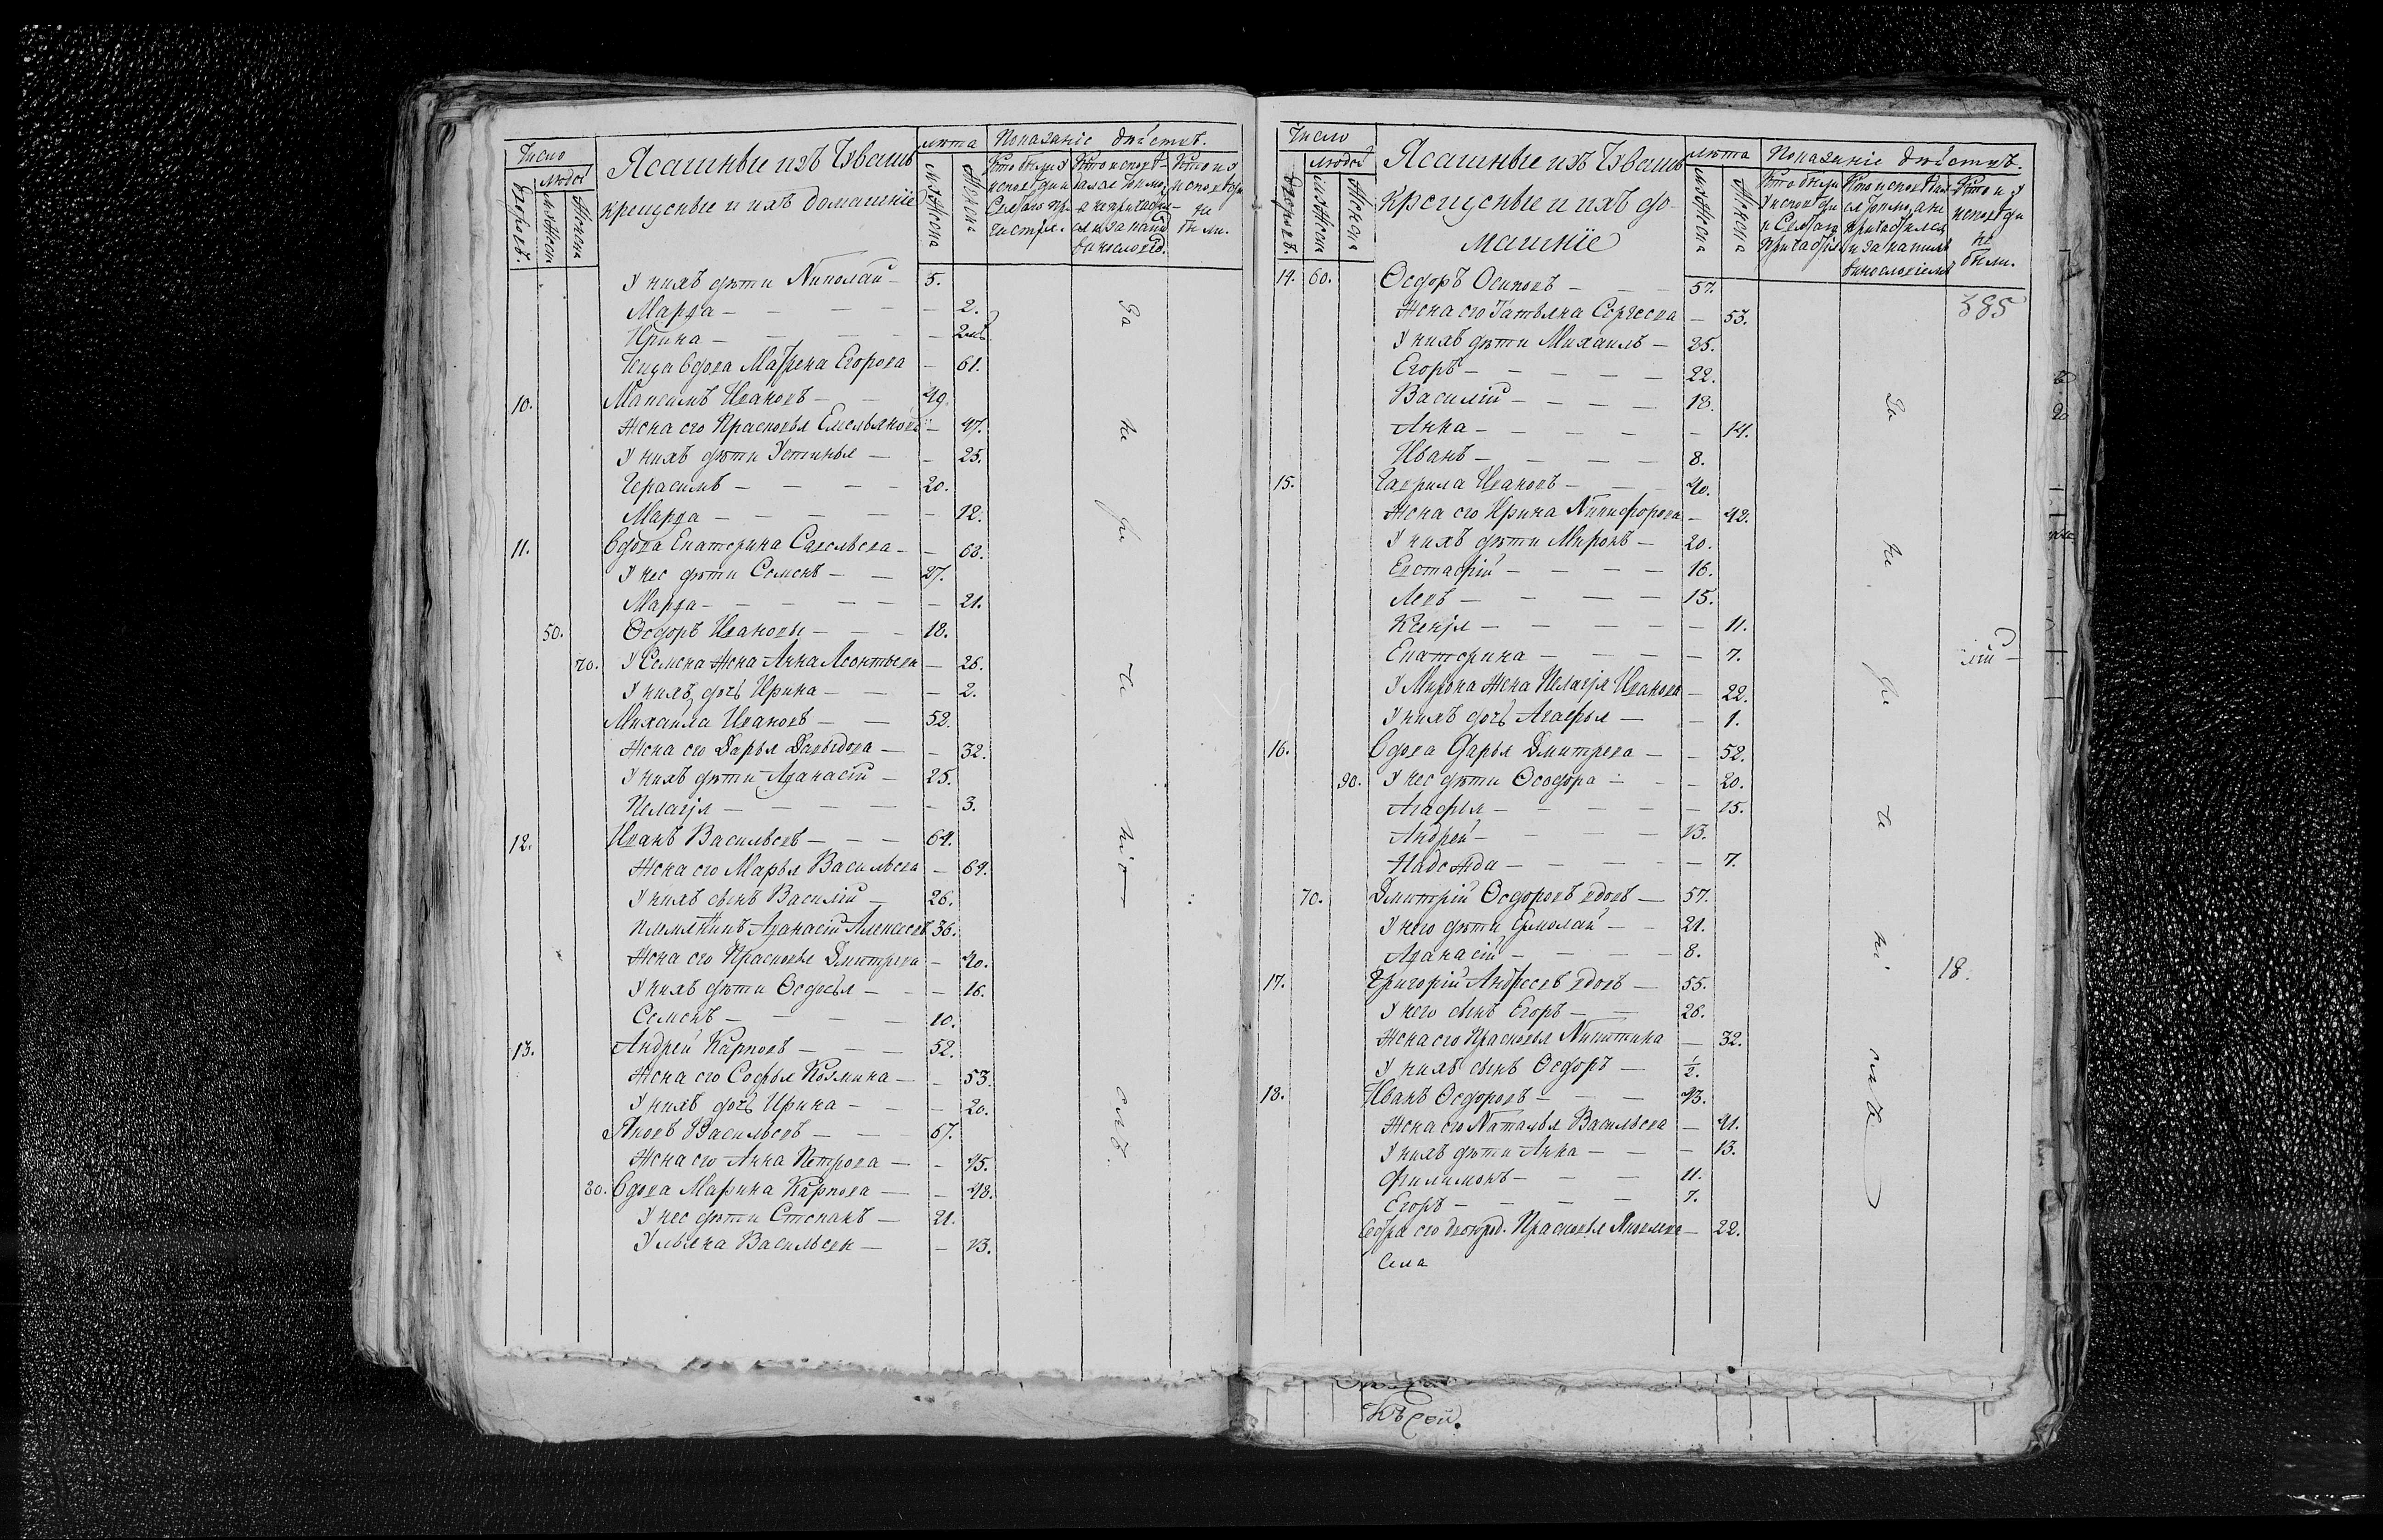 Число
Людей
Дворовъ.
Мужеск
Женска
Ясашные изъ Чувашъ
крещеные и ихъ домашніе
лѣта
Мужеска
Женска
Показаніе дѣйствъ.
Кто были у исповѣди и Святаго причастія.
Кто исповѣдался токмо, а не причастился и за какимъ винословіемъ.
Кто и у исповѣди не были.
У нихъ дѣти Николай — 5.
Марѳа — 2.
Ирина — 2мѣ
теща вдова Матрена Егорова — 61.
10. Максимъ Ивановъ — 49.
Жена его Прасковья Емельянова — 47.
У нихъ дѣти Устинья — 25.
Герасимъ — 20.
Марѳа — 12.
11. Вдова Екатерина Савельева — 68.
У нее дѣти Семенъ — 27.
Марѳа — 21.
50. Ѳедоръ Ивановы — 18.
70. У Семена жена Анна Леонтьева — 26.
У нихъ дочь Ирина — 2.
Михаила Ивановъ — 52.
Жена его Дарья Давыдова — 32.
У нихъ дѣти Аѳанасій — 25.
Пелагія — 3.
12. Иванъ Васильевъ — 64.
Жена его Марья Васильева — 64.
У нихъ сынъ Василій — 26.
племянникъ Аѳанасій Алексеевъ 36.
Жена его Прасковья Дмитрева — 40.
У нихъ дѣти Ѳедосья — 16.
Семенъ — 10.
13. Андрей Карповъ — 52.
Жена его Софья Козмина — 53.
У нихъ дочь Ирина — 20.
Яковъ Васильевъ — 67.
Жена его Анна Петрова — 45.
80. Вдова Марина Карпова — 48.
У нее дѣти Степанъ — 21.
Ульяна Васильевы — 13.
За не при ча ніе мъ.
Число
Людей
Дворовъ.
Мужеск
Женска
Ясашные изъ Чувашъ
Крещеные и ихъ до-
машніе
лѣта
Мужеска
Женска
Показаніе дѣйствъ.
Кто были у исповѣди и Святаго причастія
Кто исповѣдался токмо, а не причастился и за какимъ винословіемъ
Кто и у исповѣди не были.
385
14. 60. Ѳедоръ Осиповъ — 57.
Жена его Татьяна Сергеева — 53.
У нихъ дѣти Михаилъ — 25.
Егоръ — 22.
Василій — 18.
Анна — 14.
Иванъ — 8.
15. Гаврила Ивановъ — 40.
Жена его Ирина Никифорова — 42.
У нихъ дѣти Миронъ — 20.
Евстафій — 16.
Левъ — 15.
Ксенія — 11.
Екатерина — 7.
У Мирона жена Пелагія Иванова — 22.
У нихъ дочь Агафья — 1.
16. Вдова Дарья Дмитрева — 52.
90. У нее дѣти Ѳеодора — 20.
Агафья — 15.
Андрей — 13.
Надежда — 7.
70. Дмитрій Ѳедоровъ вдовъ — 57.
У него дѣти Ермолай — 21.
Аѳанасій — 8.
17. Григорій Андреевъ вдовъ — 55.
У него сынъ Егоръ — 26.
Жена его Прасковья Никитина — 32.
У нихъ сынъ Ѳедоръ — 1/2.
18. Иванъ Ѳедоровъ — 43.
Жена его Наталья Васильева — 41.
У нихъ дѣти Анна — 13.
Филимонъ — 11.
Егоръ — 7.
Сестра его двоюрод. Прасковья Яковлева — 22.
Села
18.